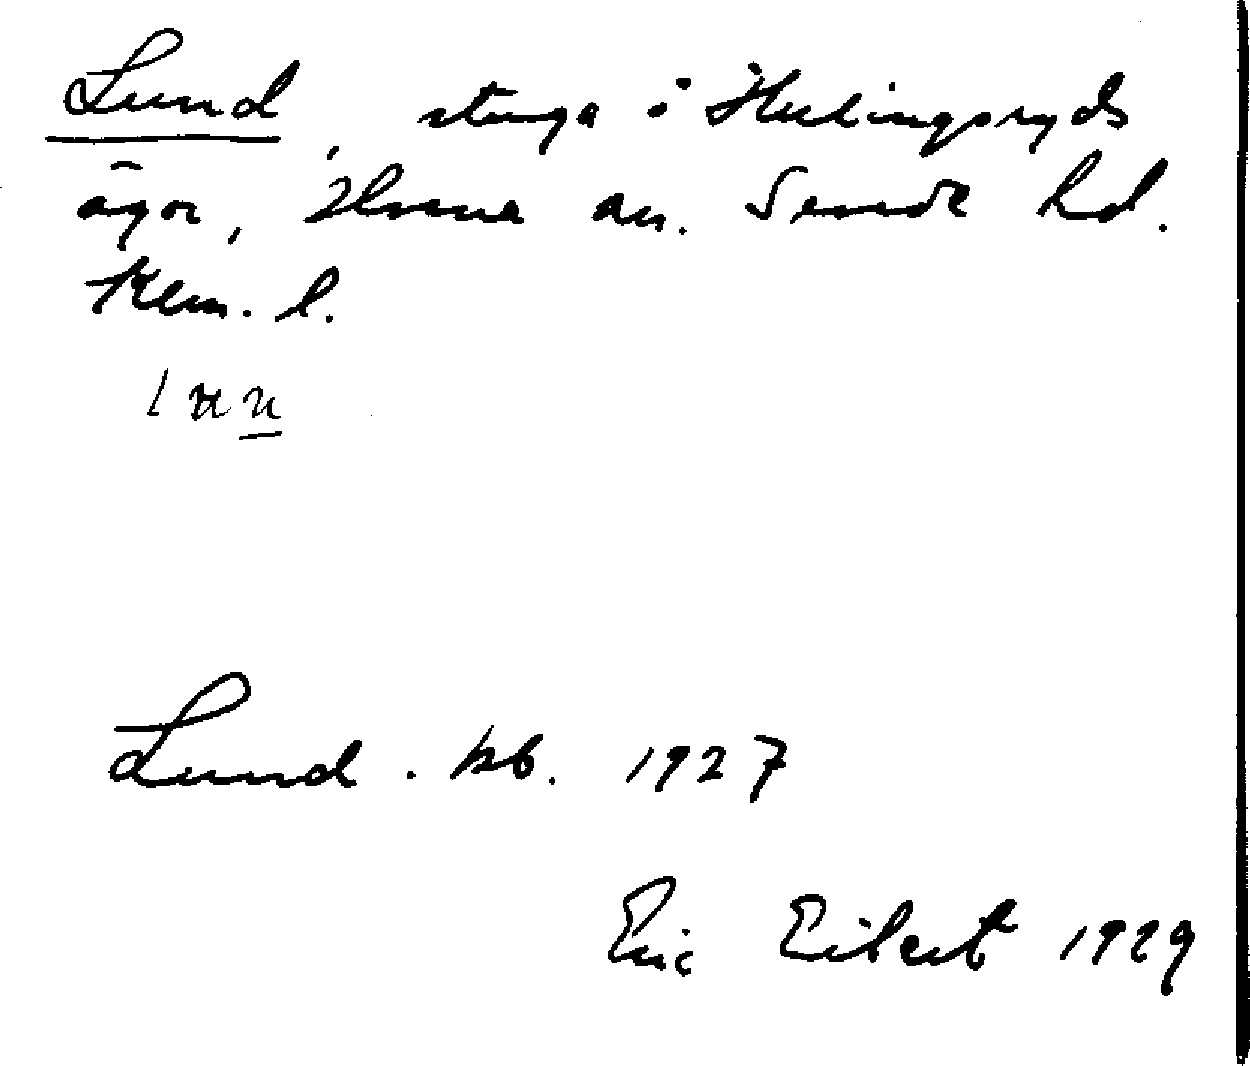 Lund, stuga i Hulingsryds
ägor, Hvena sn. Sevede hd.
Klm. l.
Lund. kb. 1927
Eric Eilert 1929